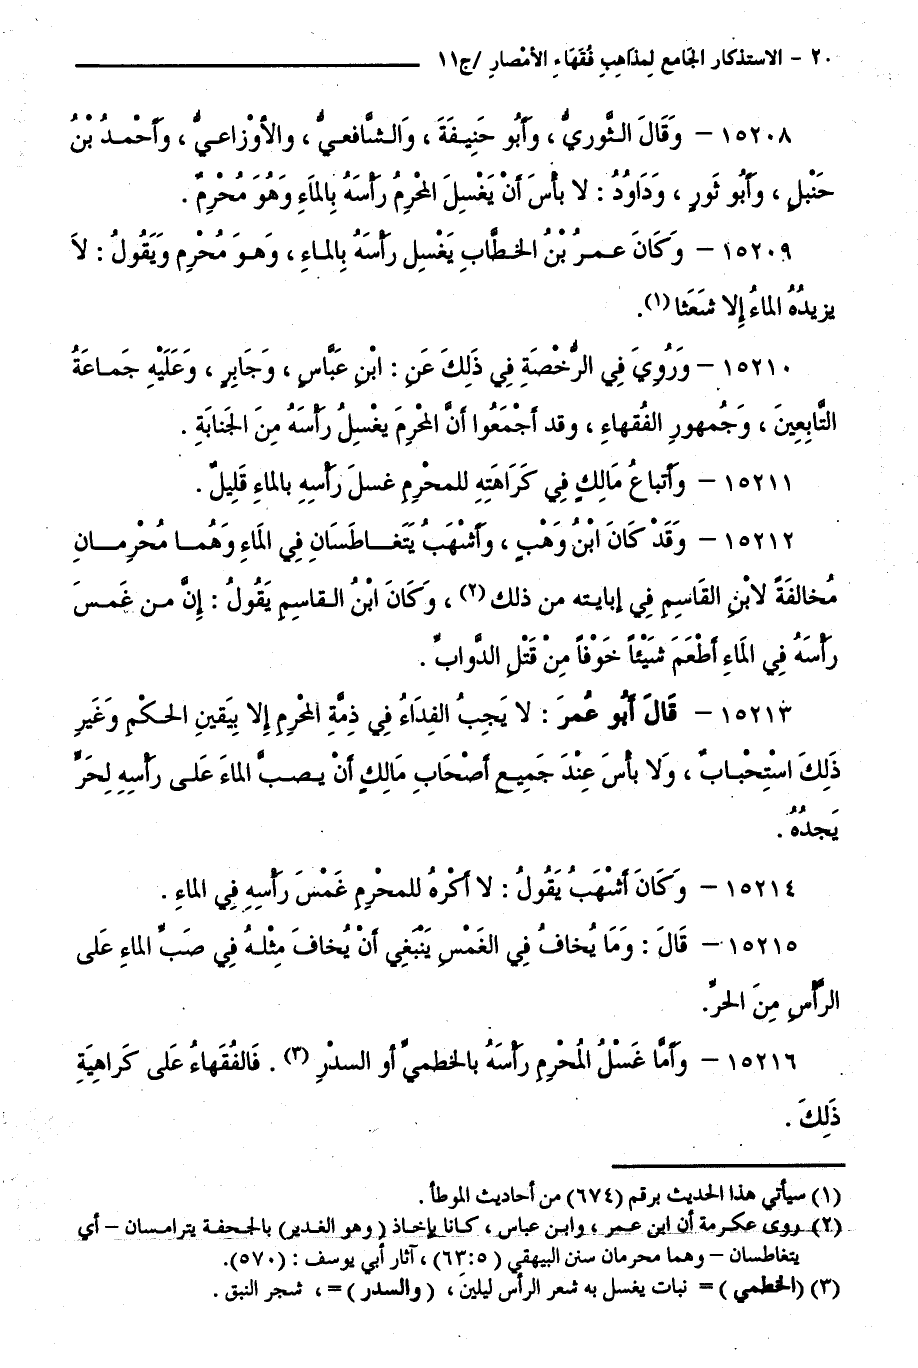 ٢٠ – الاستذكار الجَامع لِمذاهِبِ فُقَهَاءِ الأمْصارِ /ج١١
١٥٢٠٨ – وَقَالَ الثَّوريُّ ، وَأَبُو حَنِيفَةَ ، وَالشَّافعيُّ ، والأوْزاعيُّ ، وَأَحْمدُ بْنُ
حَنْبلٍ ، وَأَبُو ثَورٍ ، وَدَاوُدُ : لا بأسَ أَنْ يَغْسِلَ المحْرِمُ رَأْسَهُ بِالمَاءِ وَهُوَ مُحْرِمٌ .
١٥٢٠٩ – وَكَانَ عمرُ بْنُ الخطَّابِ يَغْسِل رأسَهُ بِالماءِ ، وَهو مُحْرِم وَيَقُولُ : لاَ
يزيدُهُ الماءُ إِلا شَعَثا (١).
١٥٢١٠ – وَرُوِيَ فِي الرُّخصَةِ فِي ذَلِكَ عَنِ : ابْنِ عَبَّاسٍ ، وَجَابِرٍ ، وَعَلَيْهِ جَماعَةُ
التَّابِعِينَ ، وَجُمهورِ الفُقهاءِ ، وقد أجْمَعُوا أنَّ المحْرِمَ يغْسِلُ رَأْسَهُ مِنَ الجَنابَةِ .
١٥٢١١ – وَأتباعُ مَالِكٍ فِي كَرَاهَتِهِ للمحْرِمِ غسلَ رَأسِهِ بالماءِ قَلِيلٌ .
١٥٢١٢ – وَقَدْ كَانَ ابْنُ وَهْبٍ ، وَأَشْهَبُ يَتَغَاطَسَانِ فِي المَاءِ وَهُما مُحْرِمانِ
مُخالفَةً لابْنِ القَاسِمِ فِي إبايته من ذلك (٢) ، وَكَانَ ابْنُ القاسِمِ يَقُولُ : إنَّ من غَمسَ
رَأْسَهُ فِي المَاءِ أَطْعَمَ شَيْئاً خَوْفاً مِنْ قَتْلِ الدَّوابِّ .
١٥٢١٣ – قَالَ أَبُو عُمرَ : لا يَجِبُ الفِدَاءُ فِي ذِمَّةِ المُحْرِمِ إِلا بِيَقينِ الحكْمِ وَغَيرِ
ذَلِكَ اسْتِحْبابٌ ، وَلا بأسَ عِنْدَ جَمِيعِ أصْحَابِ مَالِكٍ أَنْ يصبَّ الماءَ عَلى رَأسِهِ لِحَرٍّ
يَجدُهُ .
١٥٢١٤ – وَكَانَ أَشْهَبُ يَقُولُ : لا أكْرهُ للمحْرِمِ غَمْسَ رَأسِهِ فِي الماءِ .
١٥٢١٥ – قَالَ : وَمَا يُخافُ فِي الغَمْسِ يَنْبَغِي أَنْ يُخافَ مِثْلهُ فِي صَبِّ الماءِ عَلى
الرَّأسِ مِنَ الحرِّ.
١٥٢١٦ – وَأَمَّا غَسْلُ المُحْرِمِ رَأسَهُ بالخطميِّ أو السدْرِ (٣) . فَالفُقَهاءُ عَلى كَراهِيَةِ
ذَلِكَ .
(١) سيأتي هذا الحديث برقم (٦٧٤) من أحاديث الموطأ .
(٢) روى عكرمة أن ابن عمر ، وابن عباس ، كانا بإخاذ ( وهو الغدير) بالجحفة يترامسان – أي
يتغاطسان – وهما محرمان سنن البيهقي ( ٦٣:٥) ، آثار أبي يوسف : (٥٧٠).
(٣) (الخطمي ) = نبات يغسل به شعر الرأس ليلين ، ( والسدر ) = ، شجر النبق .